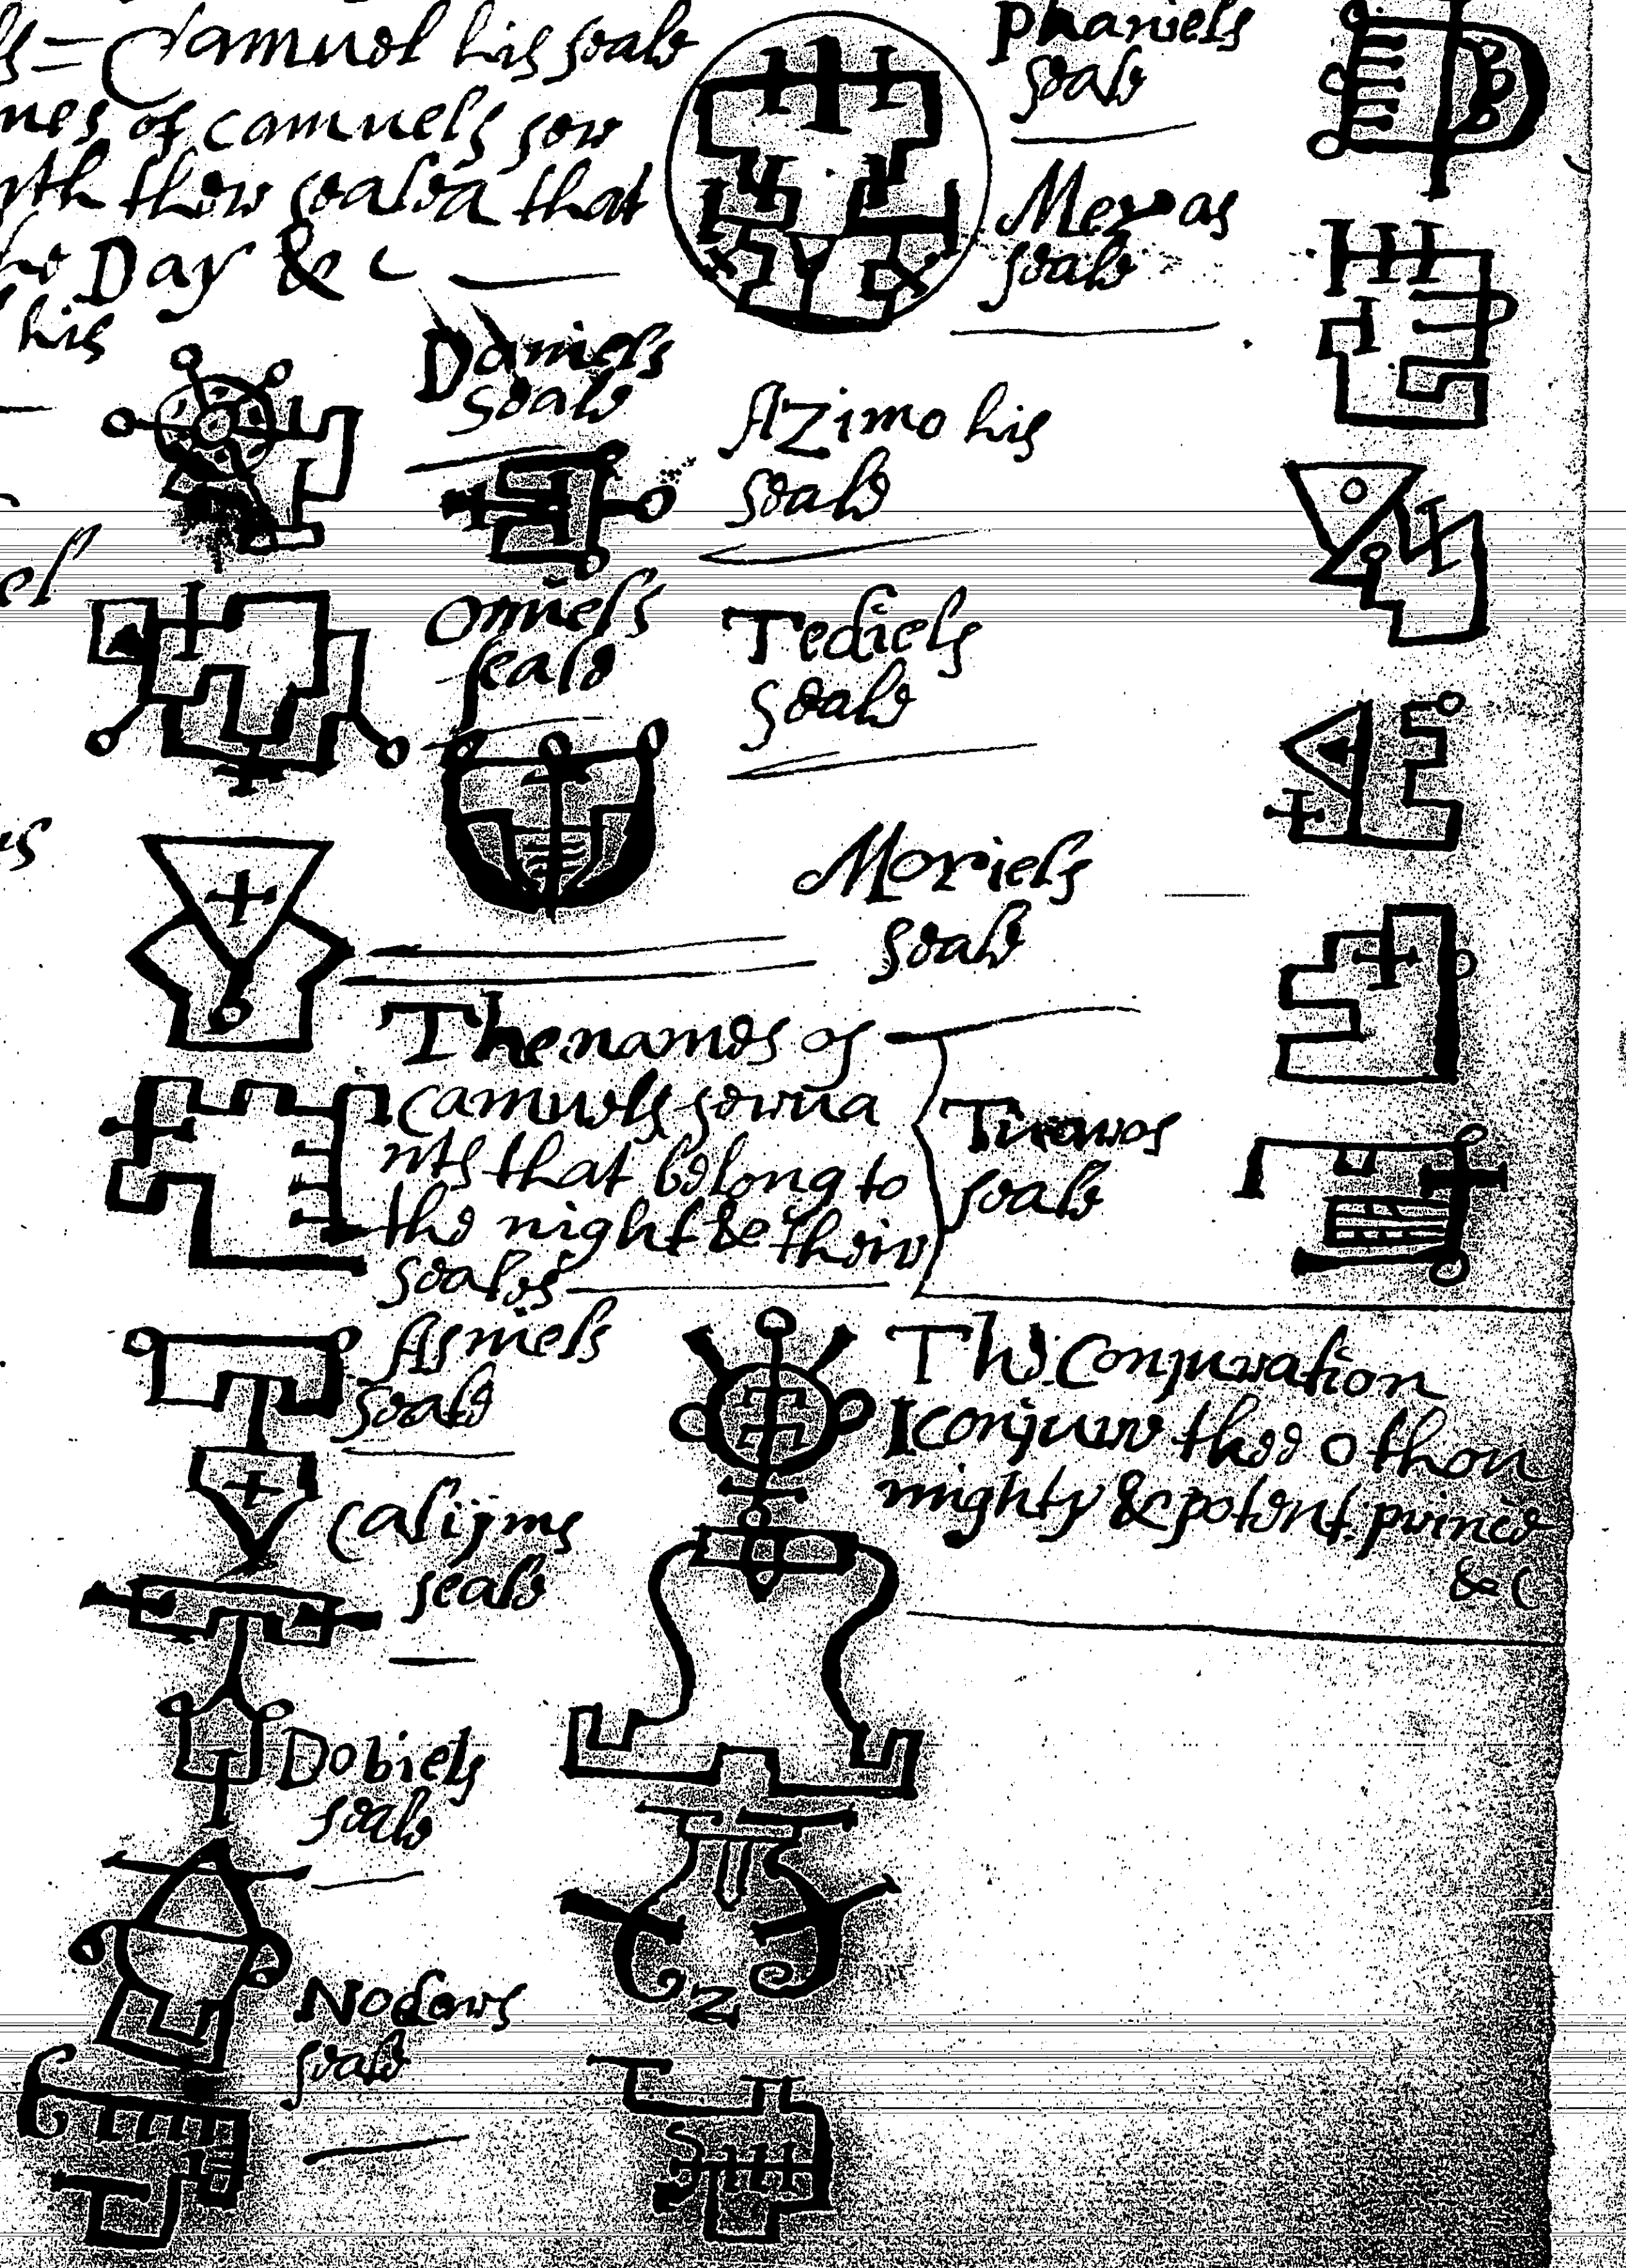 Camuel his seale
of camuels ser
seales that
Day & c
his
Daniels
seale
Omiels
seale
Phaniels
seale
Meras
seale
Azimo his
seale
Tediels
seale
Moriels
seale
The names of
Camuels serva
nts that belong to
the night & their
seales
Tuaros
seale
Asniels
seale
Calijms
seale
Dobiels
seale
Nodars
seale
The Conjuration
I conjure thee o thou
mighty & potent prince
& c